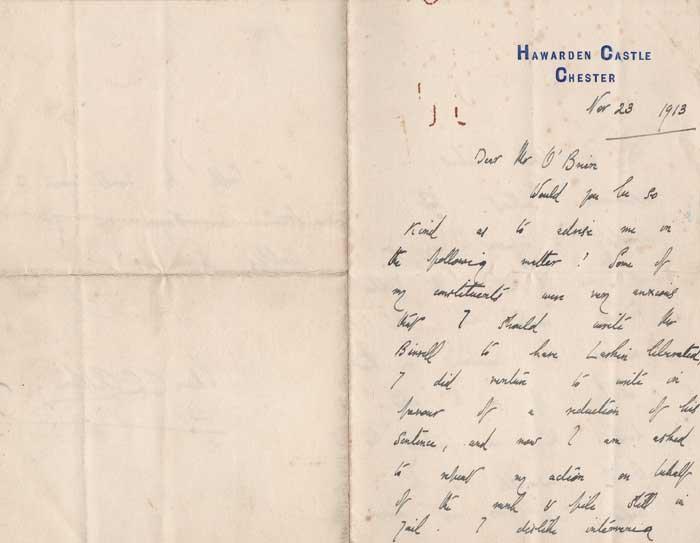 HAWARDEN CASTLE
CHESTER
Nov 23 1913
Dear Mr O'Brien
Would you be so
kind as to advise me on
the following matter? Some of
my constituents were very anxious
that I should write Mr
Birrell to have Larkin liberated,
I did venture to write in
favour of a reduction of his
sentence, and now I am asked
to repeat my action on behalf
of the rank & file still in
Jail. I dislike intervening